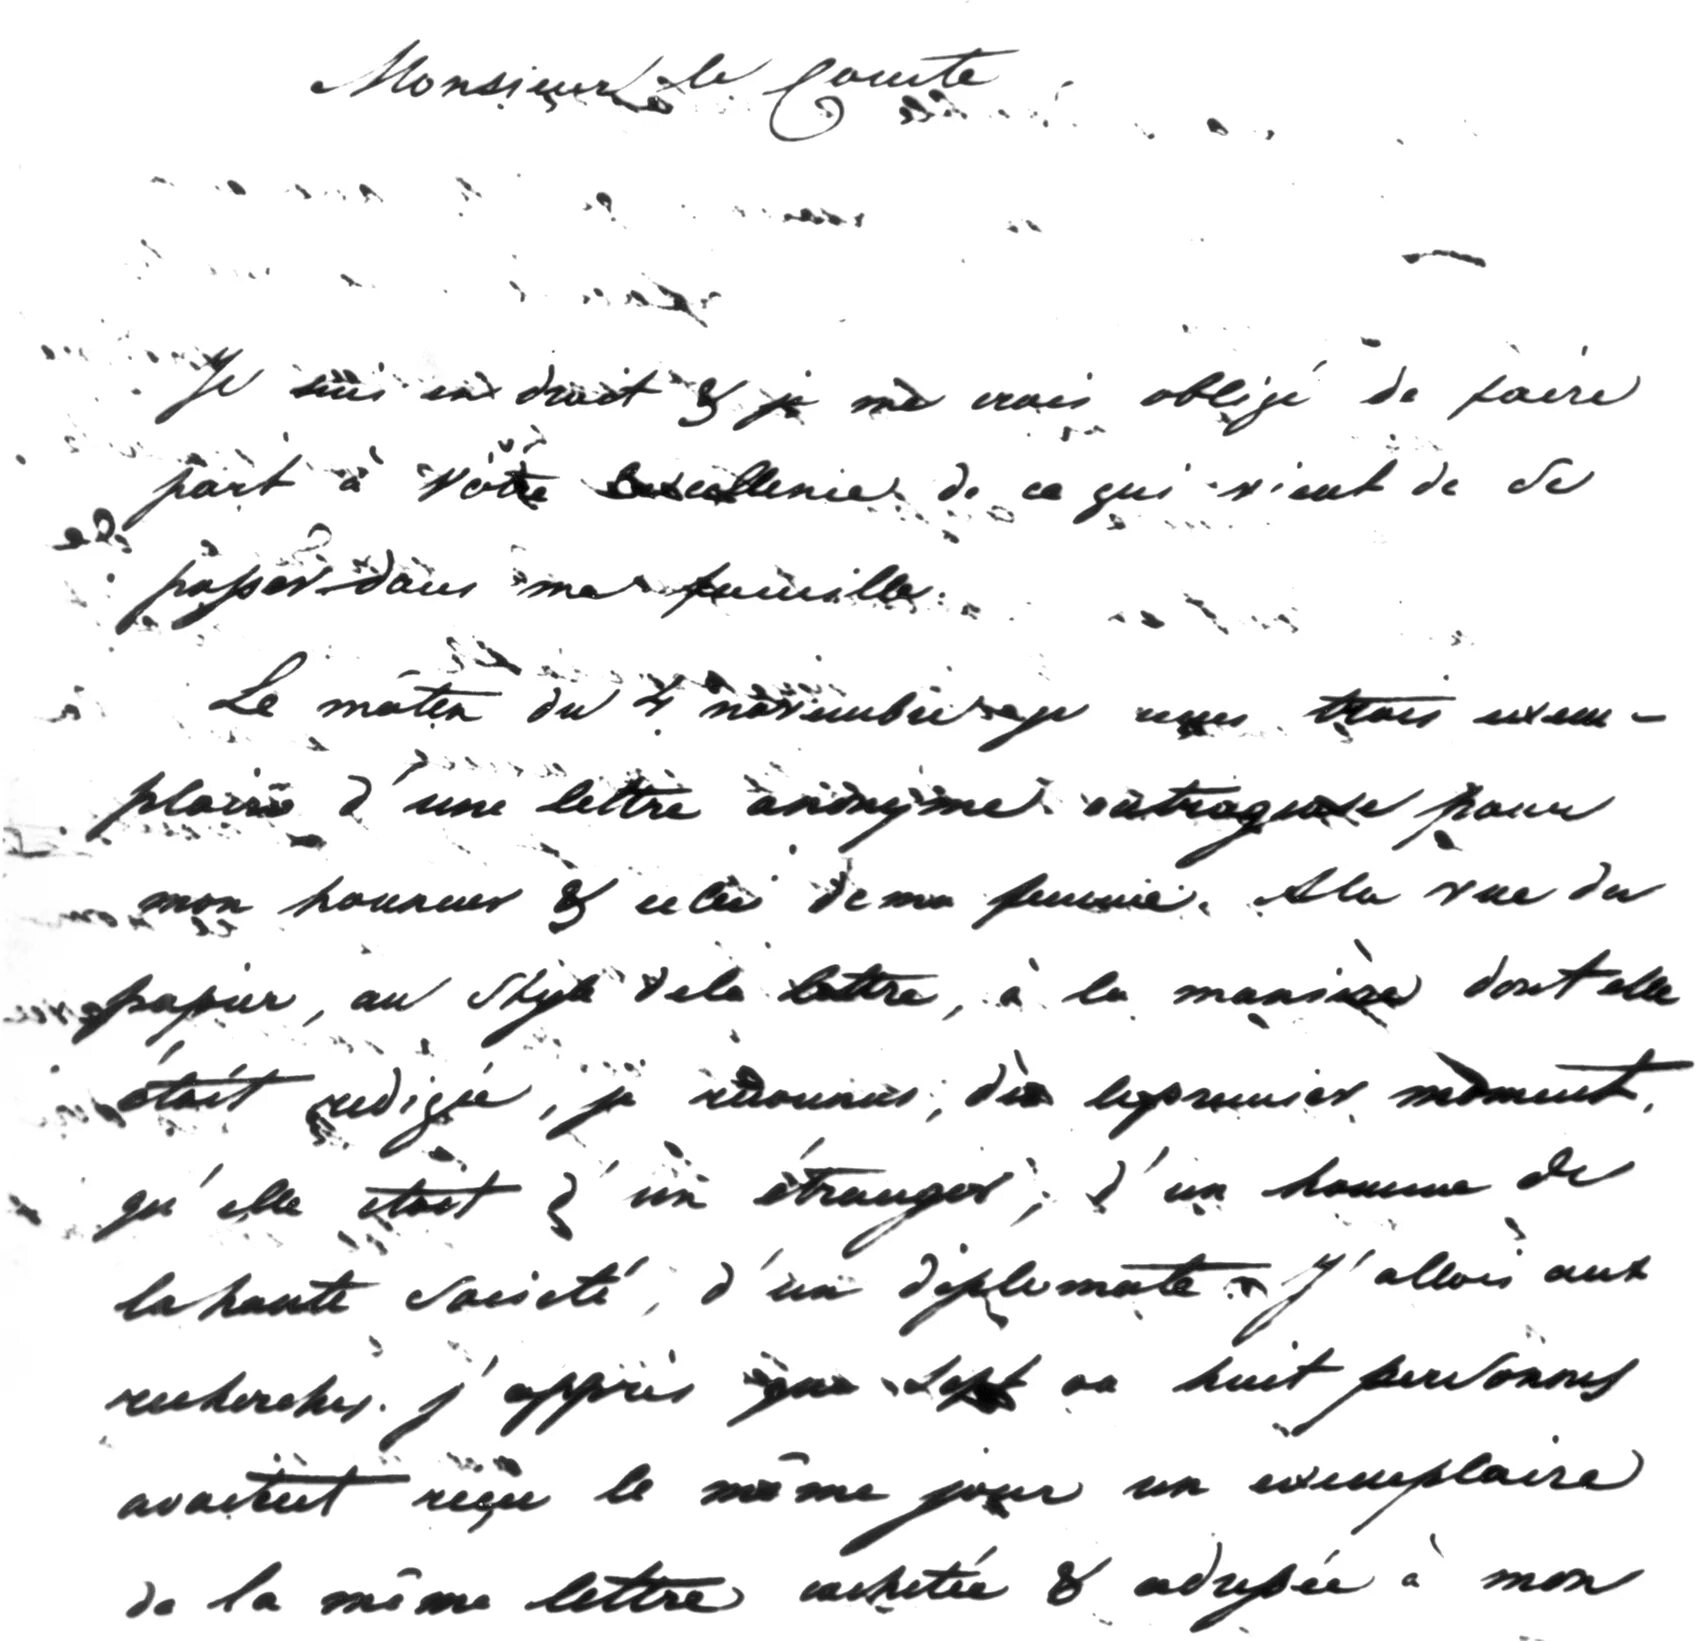 Monsieur le Comte
Je suis en droit & je me crois obligé de faire
part à votre Excellence de ce qui vient de se
passer dans ma famille.
Le matin du 4 novembre je reçus trois exem-
plaires d'une lettre anonyme outrageuse pour
mon honneur & celui de ma femme. A la vue du
papier, au style de la lettre, à la manière dont elle
était redigée, je reconnus, dès le premier moment,
qu'elle etoit d'un étranger, d'un homme de
la haute société, d'un diplomate. J'allois aux
recherches. j'appris que sept ou huit personnes
avaient reçu le même jour un exemplaire
de la même lettre cachetée & adressée à mon